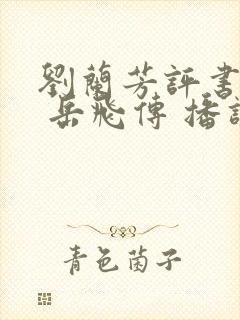 劉蘭芳評書
岳飛傳 播
青色菌子